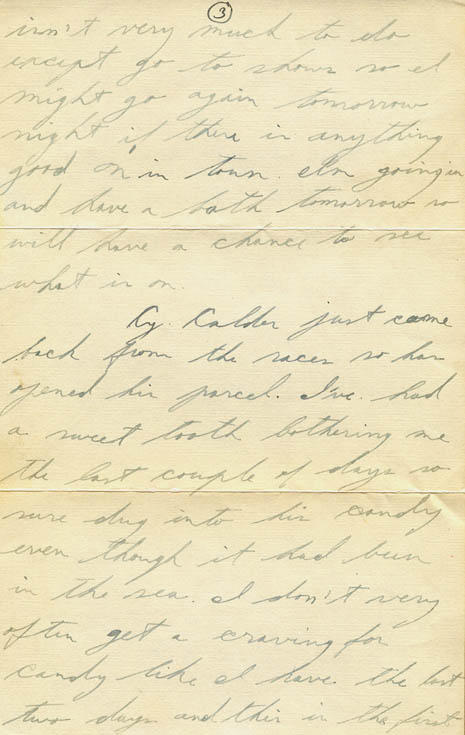 3
isn't very much to do
except go to shows so I
might go again tomorrow
night if there is anything
good on in town. I'm going in
and have a bath tomorrow so
will have a chance to see
what is on.
Cy. Calder just came
back from the races so has
opened his parcel. I've had
a sweet tooth bothering me
the last couple of days so
sure dug into his candy
even though it had been
in the sea. I don't very
often get a craving for
candy like I have the last
two days and this is the first